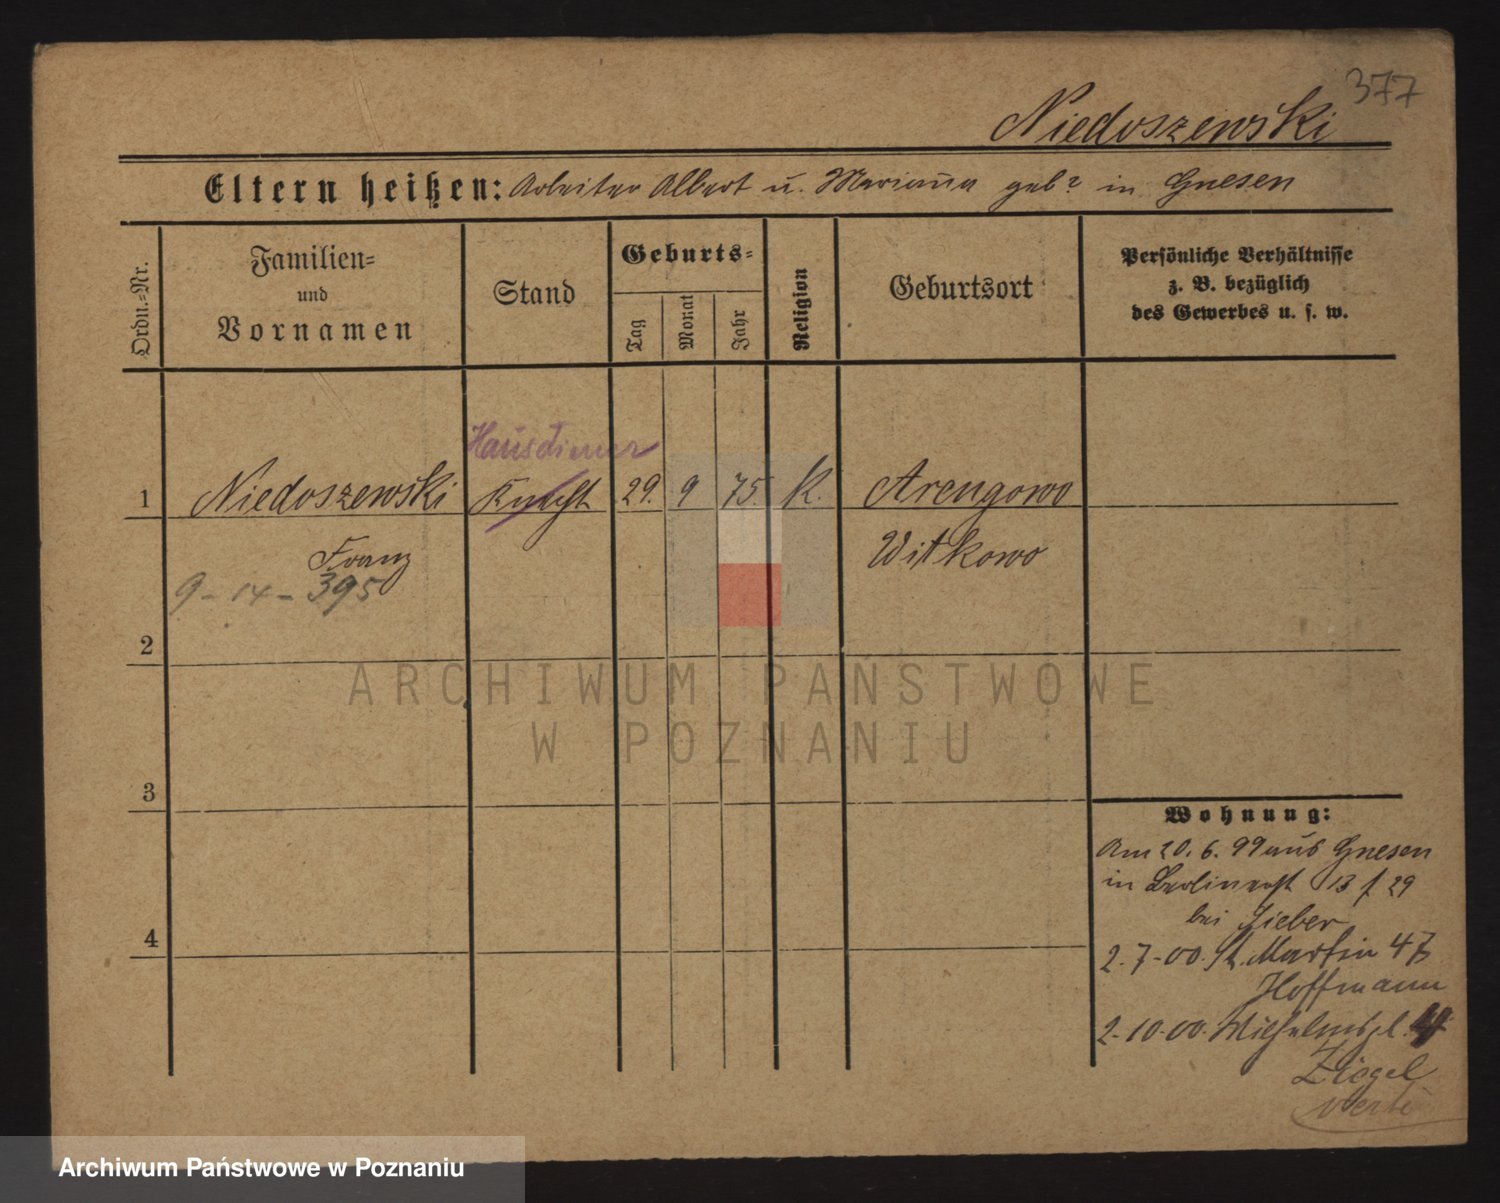 377
Niedoszewski
Eltern heißen: Arbeiter Albert u. Marianna geb? in Gnesen
Ordn.-Nr.
Familien-
und
Vornamen
Stand
Geburts-
Tag
Monat
Jahr
Religion
Geburtsort
Persönliche Verhältnisse
z. B. bezüglich
des Gewerbes u. s. w.
Hausdiener
1 Niedoszewski Knecht 29. 9 75. K. Arcugowo
Franz Witkowo
9-14-395
2
3
4
ARCHIWUM PAŃSTWOWE
W POZNANIU
Wohnung:
Am 20. 6. 99 aus Gnesen
in Berlinerst 13 f 29
bei Zieber
2.7-00. St. Martin 47
Hoffmann
2.10-00. Wilhelmspl. 4
Ziegel
verte
Archiwum Państwowe w Poznaniu